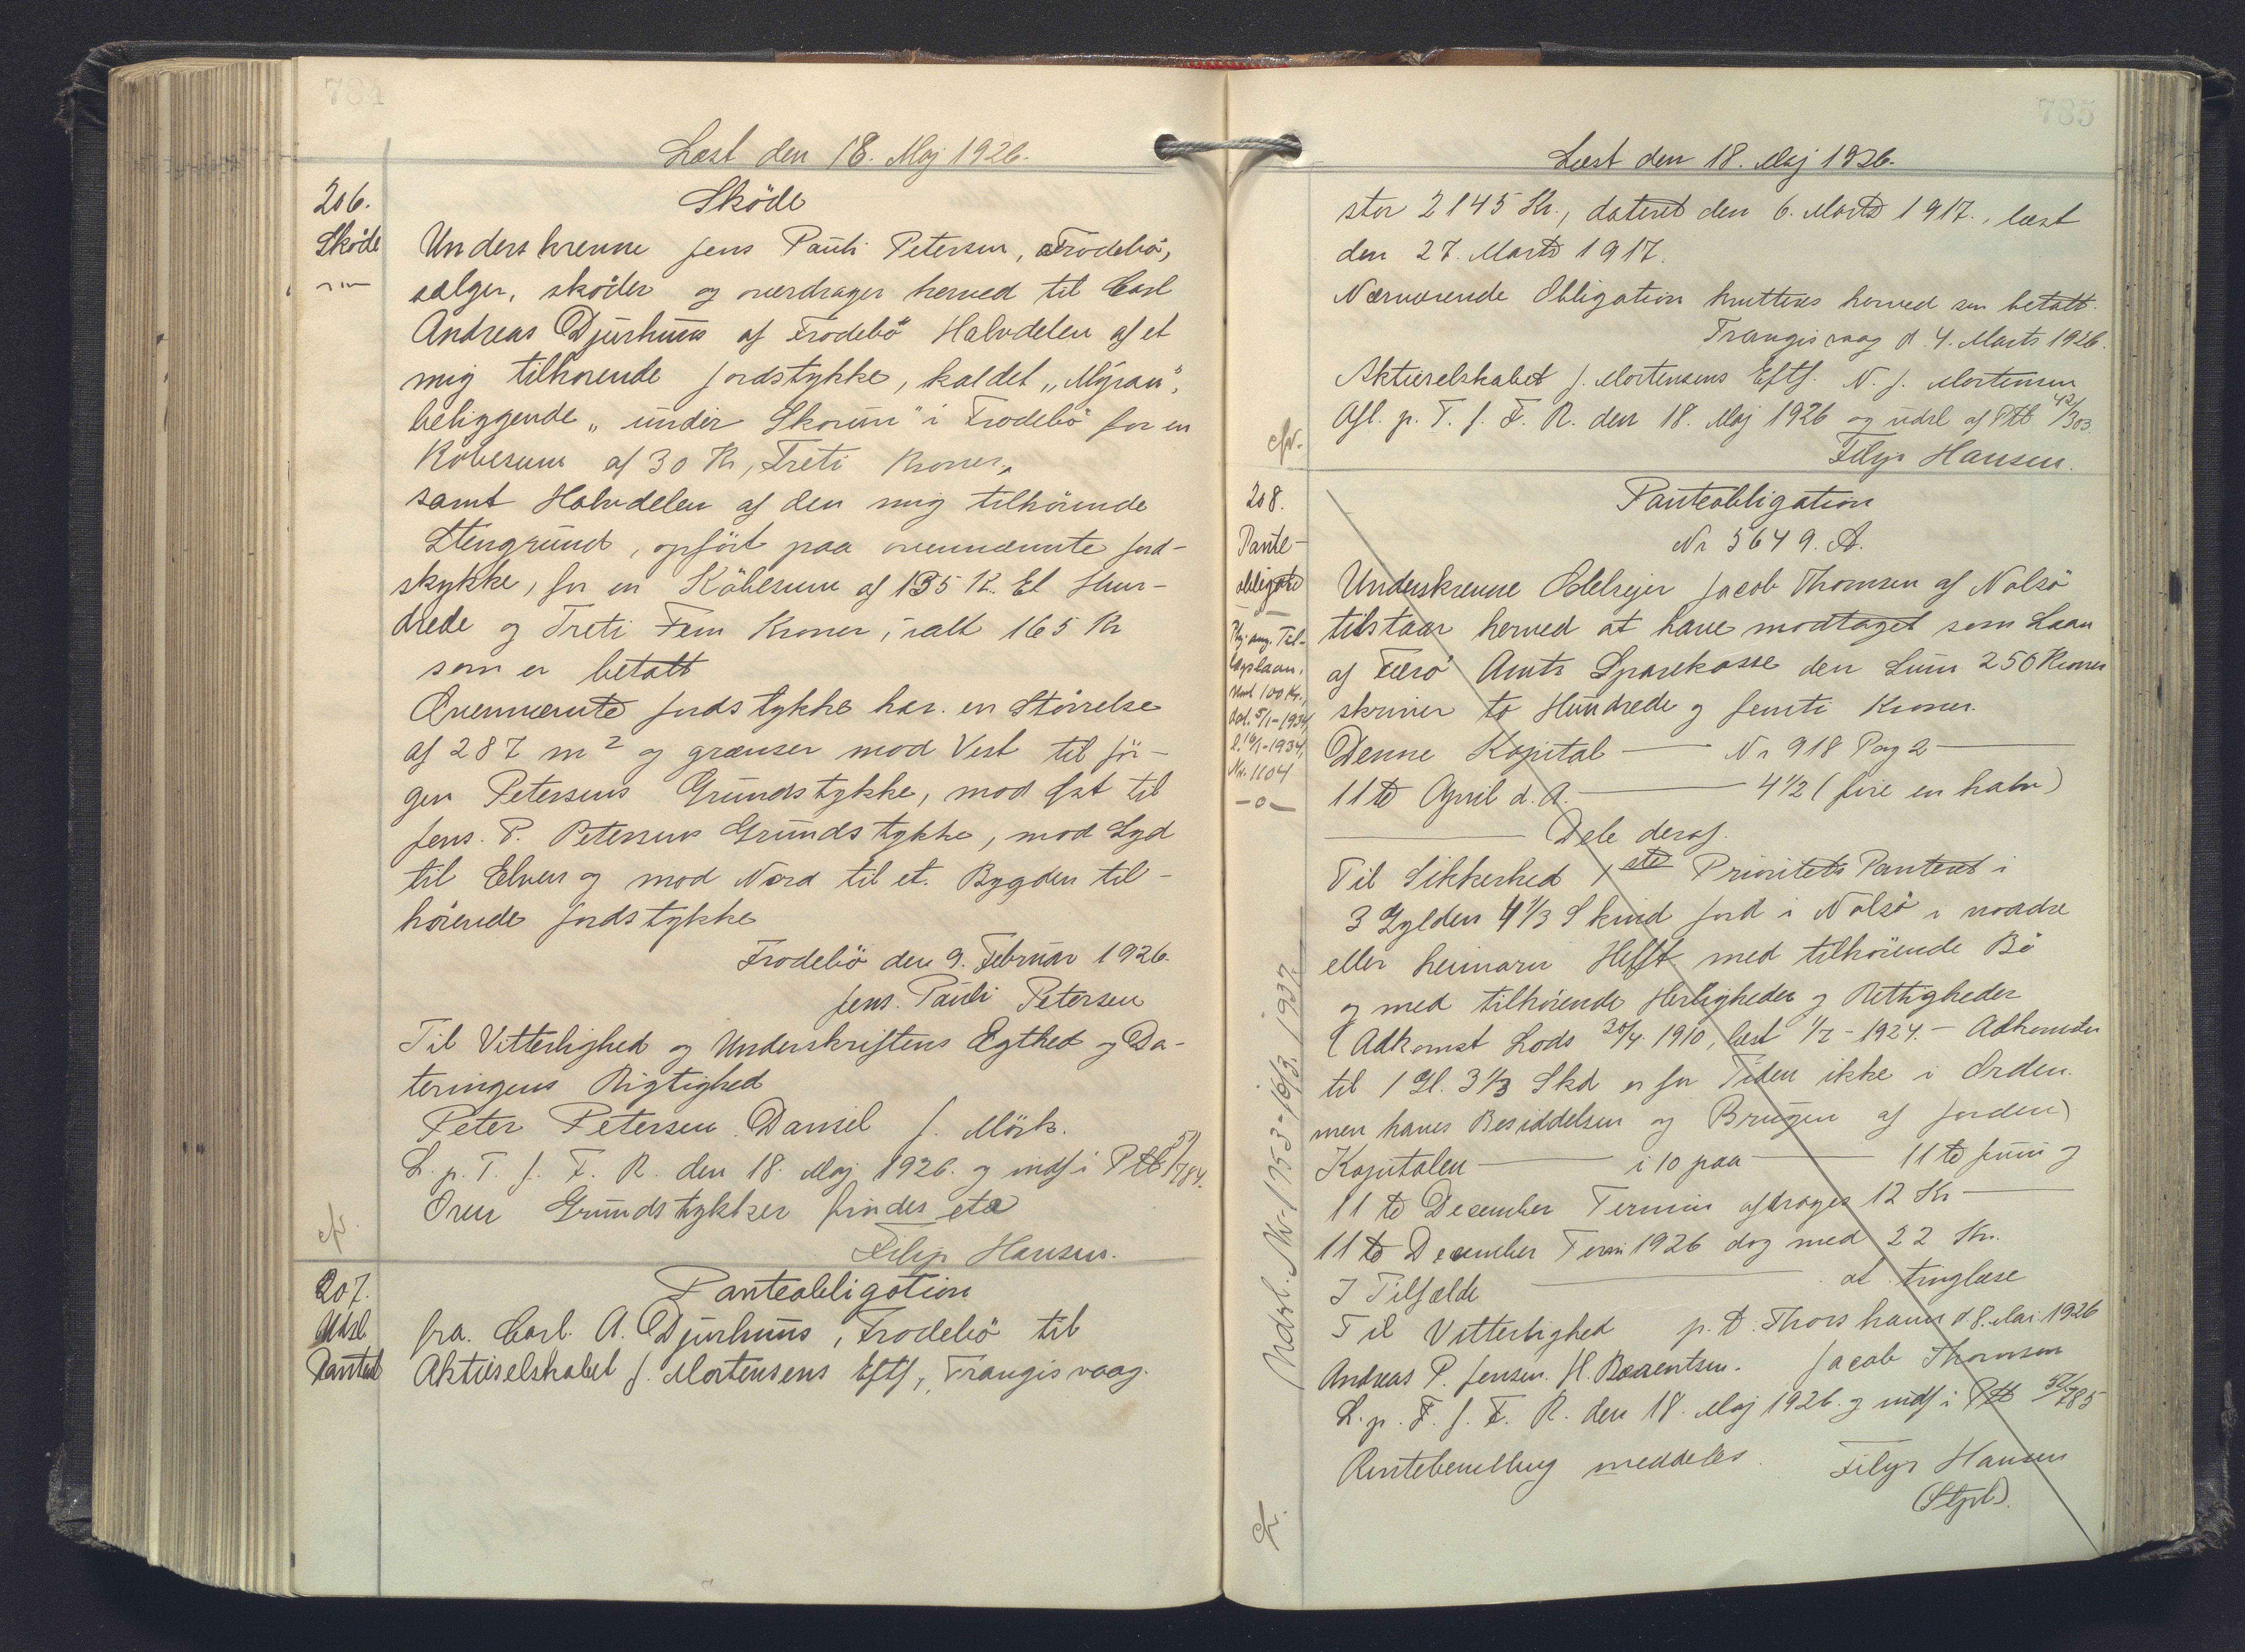 784
Læst den 18. Maj 1926.
206.
Skøde
Skøde
Underskrevne Jens Pauli Petersen, Frodebø,
sælger, skøder og overdrager herved til Carl
Andreas Djurhuus af Frodebø Halvdelen af et
mig tilhørende Jordstykke, kaldet „Mýran",
beliggende „under Skorun" i Frodebø for en
Købesum af 30 Kr, Treti Kroner,
samt Halvdelen af den mig tilhørende
Stengrund, opført paa ovennævnte Jord-
stykke, for en Købesum af 135 Kr. Et Hun-
drede og Treti Fem Kroner, ialt 165 Kr
som er betalt
Ovennævnte Jordstykke har en Størrelse
af 287 m² og grænser mod Vest til Jør-
gen Petersens Grundstykke, mod Øst til
Jens. P. Petersens Grundstykke, mod Syd
til Elven og mod Nord til et Bygden til-
hørende Jordstykke
Frodebø den 9. Februar 1926.
Jens. Pauli Petersen
Til Vitterlighed og Underskriftens Ægthed og Da-
teringens Rigtighed
Peter Petersen Daniel J. Mörk.
L. p. T. f. F. R. den 18. Maj 1926. og indf i Ptb 51/784.
Over Grundstykker findes
cfr.
Filip Hansen.
207.
Udsl
Panteobligation
fra Carl. A. Djurhuus, Frodebø til
Aktieselskabet J. Mortensens Eftf., Trangisvaag.
785
Læst den 18. Maj 1926.
stor 2145 Kr., dateret den 6. Marts 1917., læst
den 27. Marts 1917.
Nærværende Obligation kvitteres herved som betalt.
Trangisvaag d. 4. Marts 1926.
Aktieselskabet J. Mortensens Eftf. N. J. Mortensen
Afl. p. T. f. F. R. den 18. Maj 1926 og udsl af Ptb 42/303.
cfr.
Filip Hansen.
208.
Pante-
obligation
Panteobligation
Nr 5649. A.
Underskrevne Odelsejer Jacob Thomsen af Nolsø
tilstaar herved at have modtaget som Laan
af Færø Amts Sparekasse den Sum 250 Kroner
skriver to Hundrede og femti Kroner.
Denne Kapital — Nr 918 Pag 2 —
11te April d. A. — 4 1/2 (fire en halv)
— Dele deraf.
Til Sikkerhed 1ste Prioritets Panteret i
3 Gylden 4 1/3 Skind Jord i Nolsø i nordre
eller heimaru Helft med tilhørende Bø
og med tilhørende Herligheder og Rettigheder
(Adkomst Lods 30/4. 1910, læst 1/7 - 1924. - Adkomsten
til 1 Gl. 3 1/3 Skd er for Tiden ikke i Orden.
men haves Besiddelsen og Brugen af Jorden)
Kapitalen — i 10 paa — 11te Juni og
11te December Termin afdrages 12 Kr —
11te December Termin 1926 dog med 22 Kr.
I Tilfælde — at tinglæse
Til Vitterlighed p. t. Thorshavn d 8. Mai 1926
Andreas P. Jensen. H. Barentsen. Jacob Thomsen
L. p. T. f. F. R. den 18. Maj 1926. og indf i Ptb 51/785
Rentebevilling meddeles. Filip Hansen
Hyp. ang. Til-
lægslaan,
stort 100 Kr.,
dat. 5/1-1934,
l. 16/1-1934,
Nr. 1104
-o-
Udsl. Nr. 1753-16/3. 1937.
cfr.